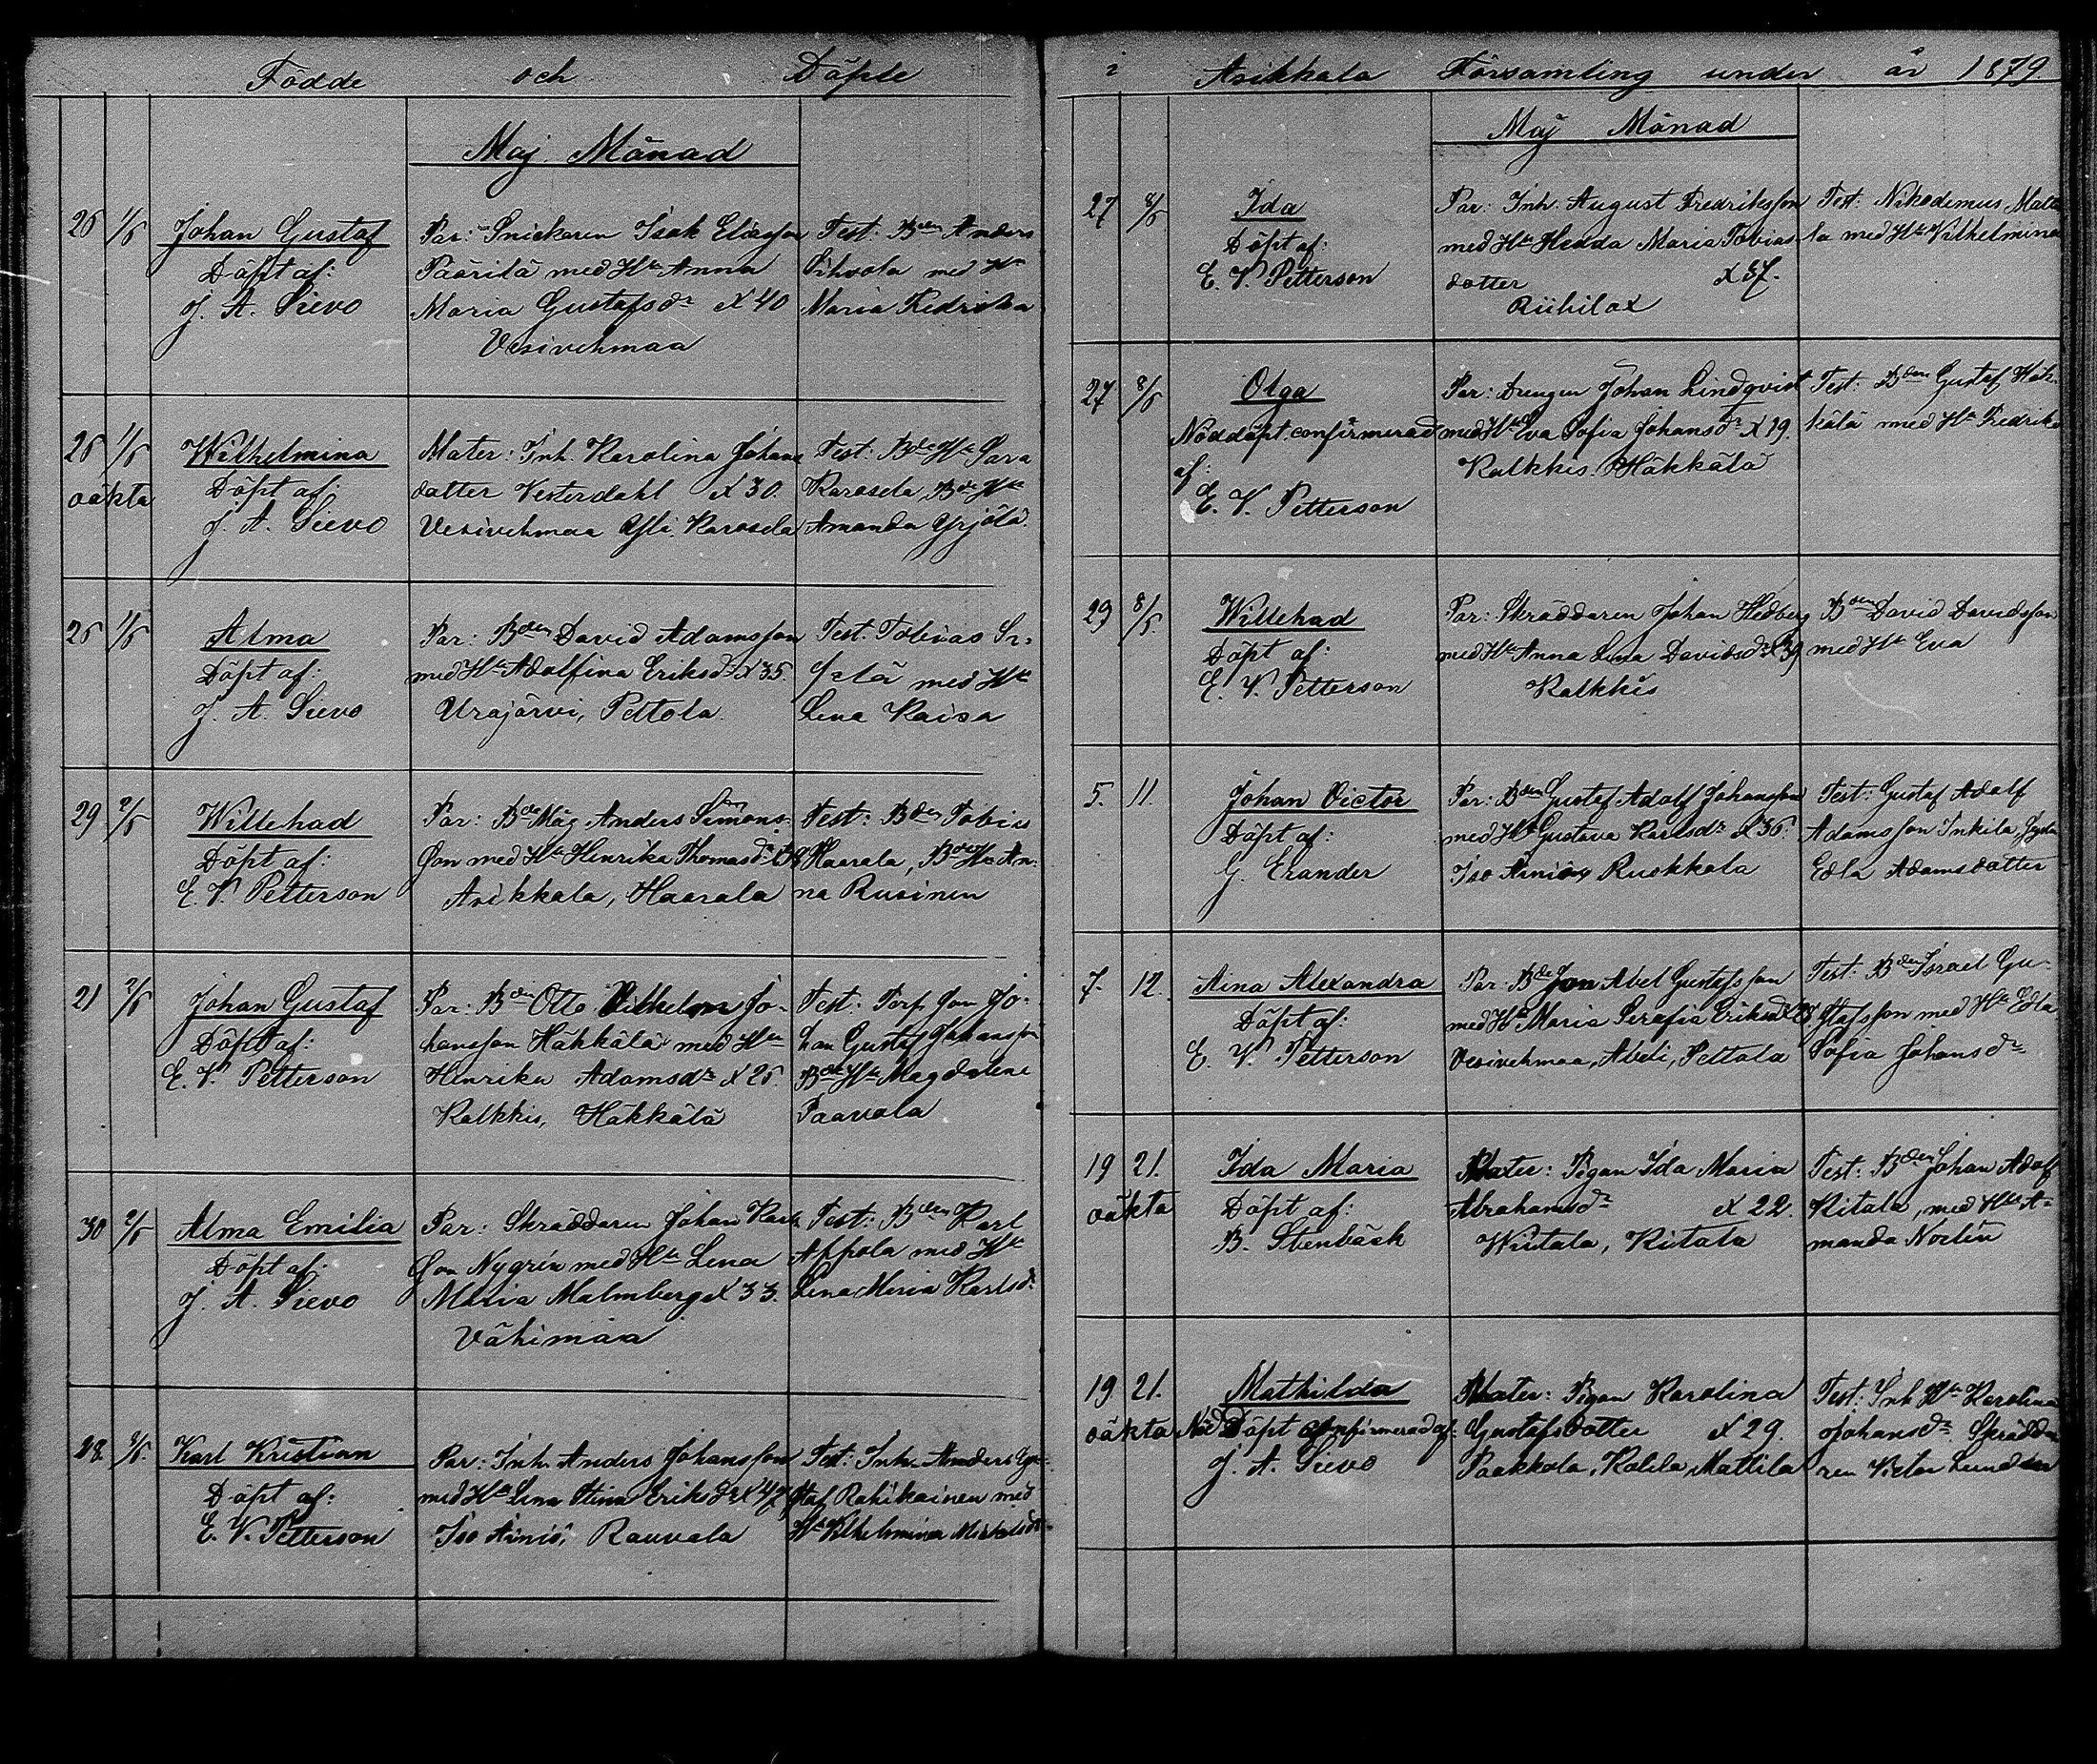 Födde och Döpte
Maj Månad
26 1/5 Johan Gustaf
Döpt af:
J. A. Sievo
Par: Snickaren Isak Eliasson
Pääritä med Hu Anna
Maria Gustafsdr X 40
Vesivehmaa
Test: Bden Anders
Sihvola med Hu
Maria Fredrika
26 1/5 Wilhelmina
oäkta Döpt af:
J. A. Sievo
Mater: Inh. Karolina Johans
dotter Vesterdahl X 30.
Vesivehmaa Yli Karosela
Test: Bde Hu Sara
Karosela, Bde Hu
Amanda Yrjölä.
25 1/5 Alma
Döpt af:
J. A. Sievo
Par: Bden David Adamsson
med Hu Adolfina Eriksdr X 35.
Urajärvi, Peltola.
Test: Tobias
med Hu
Lena Kaisa
29 2/5 Willehad
Döpt af:
E. V. Petterson
Par: Bde Måg Anders Simons-
son med Hu Henrika Thomasdr
Asikkala, Haarala
Test: Bden Tobias
Haarala, Bde Hu An-
na Rusinen
21 2/5 Johan Gustaf
Döpt af:
E. V. Petterson
Par: Bden Otto Vilhelm Jo-
hansson Häkkälä med Hu
Henrika Adamsdr X 25.
Kalkkis, Häkkälä
Test: Torp. son Jo-
han Gustaf Johansson
Bde Hu Magdalena
Paavola
30 2/5 Alma Emilia
Döpt af:
J. A. Sievo
Par: Skräddaren Johan Karls
son Nygrén med Hu Lena
Maria Malmberg X 33.
Vähimaa
Test: Bden Karl
Appola med Hu
Lena Maria Karlsdr
28 Karl Kristian
Döpt af:
E. V. Petterson
Par: Inh. Anders Johansson
med Hu Lena Stina Eriksdr X 47
Iso Äiniö, Rauvala
Test: Inh. Anders Gu-
staf Rahikainen med
Hu Vilhelmina
i Asikkala Församling under år 1879
Maj Månad
27 8/5 Ida
Döpt af:
E. V. Petterson
Par: Inh. August Fredriksson
med Hu Hedda Maria Tobias
dotter X 37.
Riihilax
Test: Nikodemus Matti
la med Hu Vilhelmina
27 8/5 Olga
Nöddöpt. confirmerad
af:
E. V. Petterson
Par: Drengen Johan Lindqvist
med Hu Eva Sofia Johansdr X 19.
Kalkkis. Häkkälä
Test: Bden Gustaf Häk-
kälä med Hu Fredrika
29 8/5 Willehad
Döpt af:
E. V. Petterson
Par: Skräddaren Johan Hedberg
med Hu Anna Lena Davidsdr X 39
Kalkkis
Bden David Davidsson
med Hu Eva
5. 11. Johan Victor
Döpt af:
G. Erander
Par: Bden Gustaf Adolf Johansson
med Hu Gustava Karlsdr X 36.
Iso Äiniö, Ruokkola
Test: Gustaf Adolf
Adamsson Inkilä,
Edla Adamsdotter
7. 12. Aina Alexandra
Döpt af:
E. V. Petterson
Par: Bde Son Abel Gustafsson
med Hu Maria Serafia Eriksdr
Vesivehmaa, Abeli, Peltola
Test: Bden Israel Gu-
stafsson med Hu Edla
Sofia Johansdr
19 21. Ida Maria
oäkta Döpt af:
B. Stenbäck
Mater: Pigan Ida Maria
Abrahamsdr X 22.
Viitala, Riitala
Test: Bden Johan Adolf
Riitala, med Hu A-
manda Norlin
19 21. Mathilda
oäkta Nöddöpt confirmerad af:
J. A. Sievo
Mater: Pigan Karolina
Gustafsdotter X 29.
Paakkola, Kalela Mattila
Test: Inh Hu Karolina
Johansdr. Skrädda
ren Victor